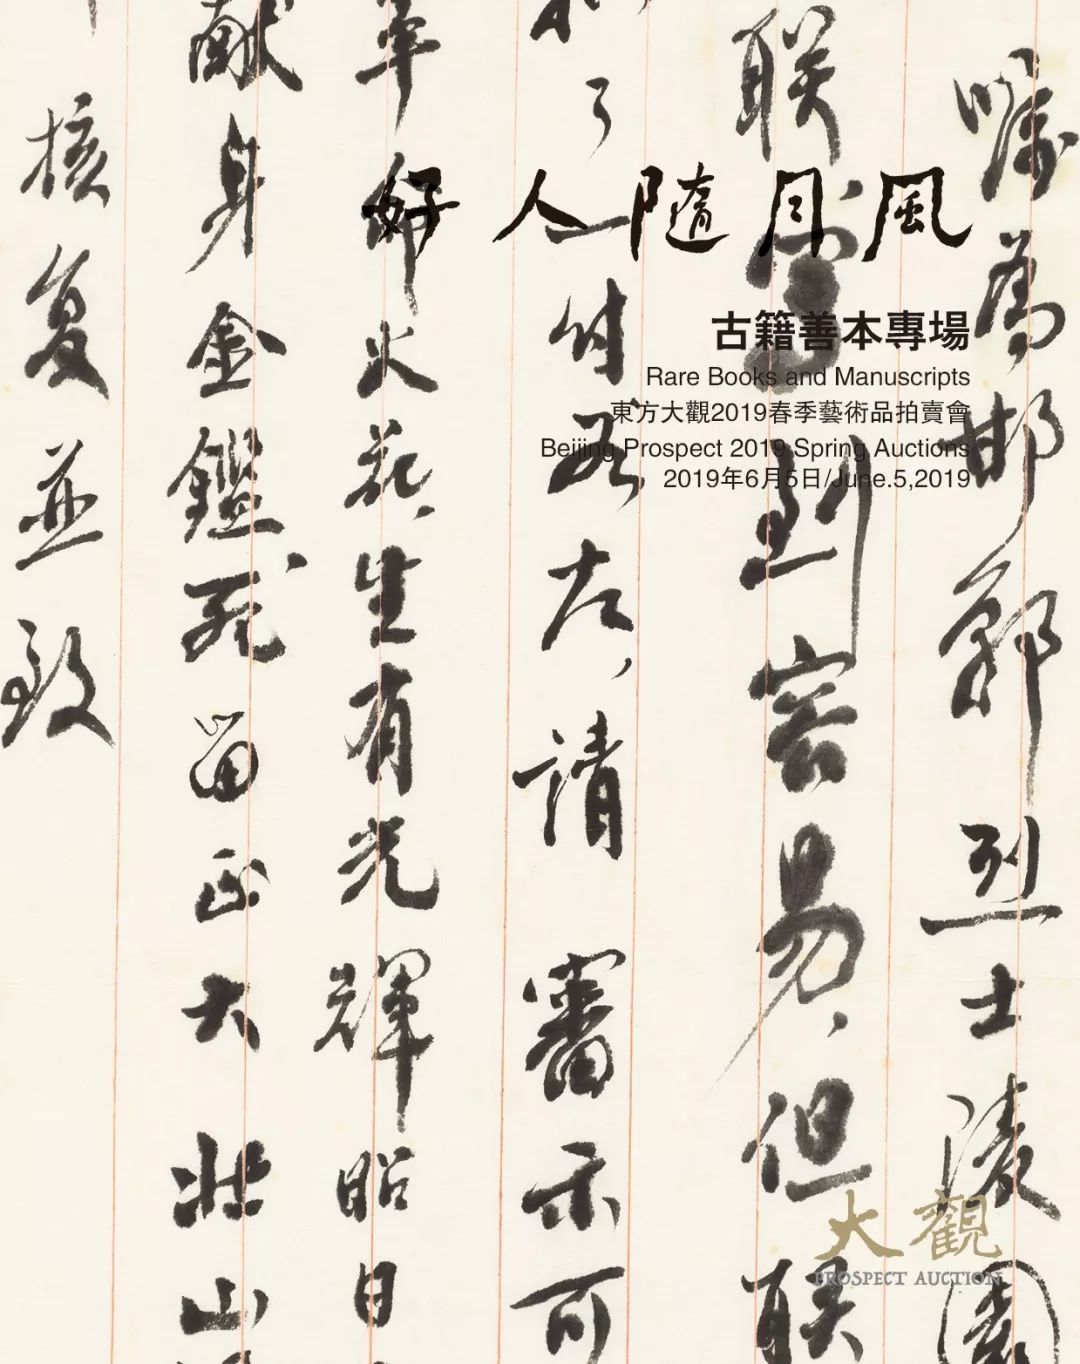 風月隨人好
古籍善本專場
Rare Books and Manuscripts
東方大觀2019春季藝術品拍賣會
Beijing Prospect 2019 Spring Auctions
2019年6月5日/June.5,2019
囑為邯鄲烈士陵園
聯寫到容易，但聯
了一付如左，請審示可
犖火花，生有光輝昭日
獻身金鑑，死留正大壯山
核复並致
大觀
PROSPECT AUCTION